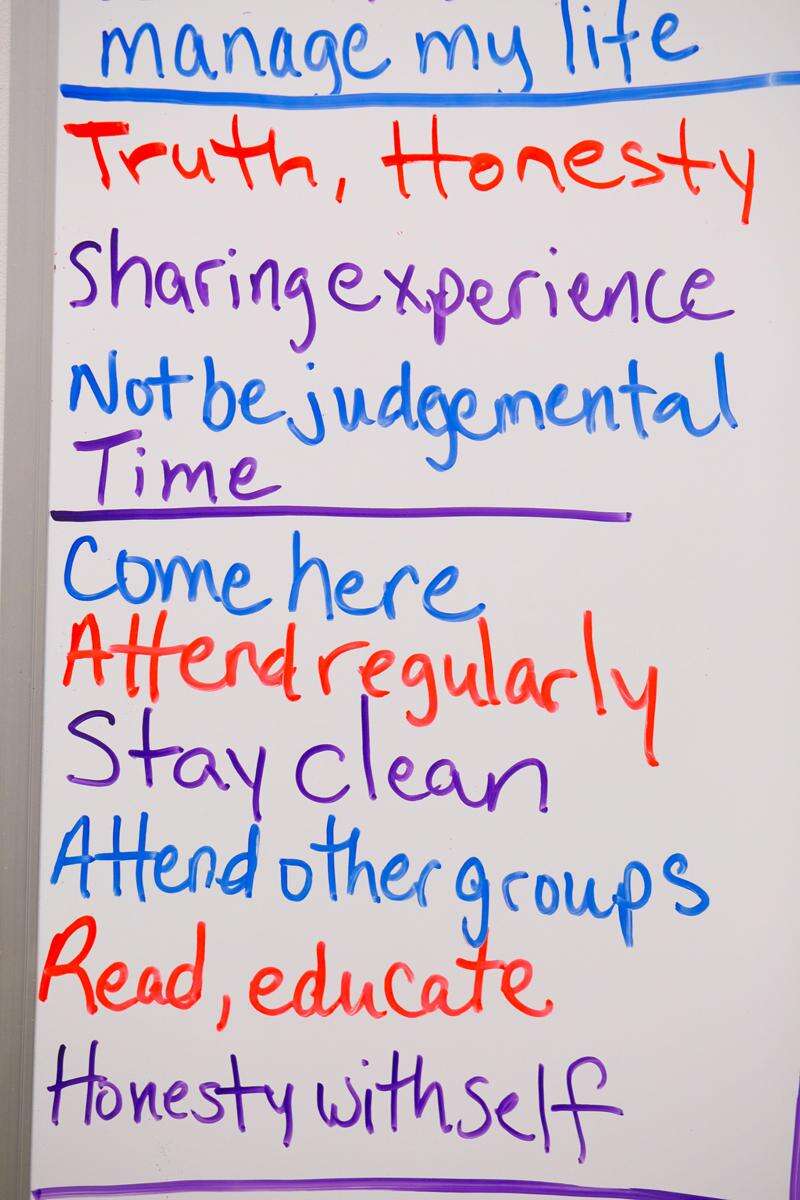 manage my life
Truth, Honesty
Sharing experience
Not be judgemental
Time
Come here
Attend regularly
Stay clean
Attend other groups
Read, educate
Honesty with self